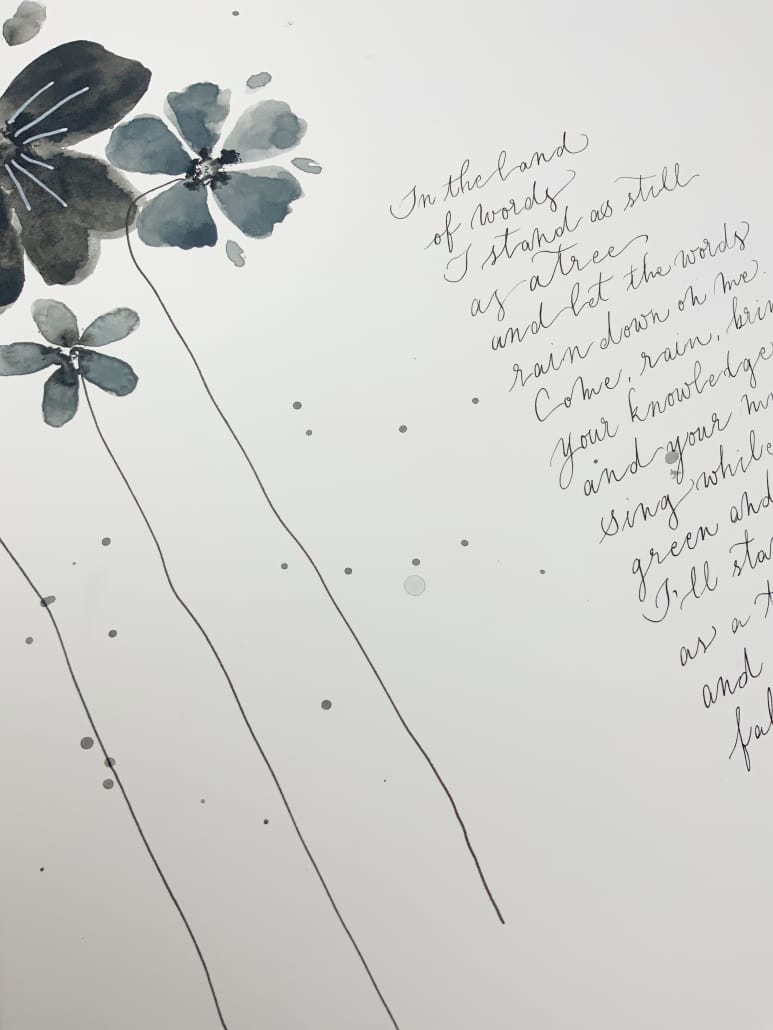 In the land
of words
I stand as still
as a tree
and let the words
rain down on me.
Come, rain, brin
your knowledge
and your mu
sing while
green and
I'll sta
as a t
and
fal